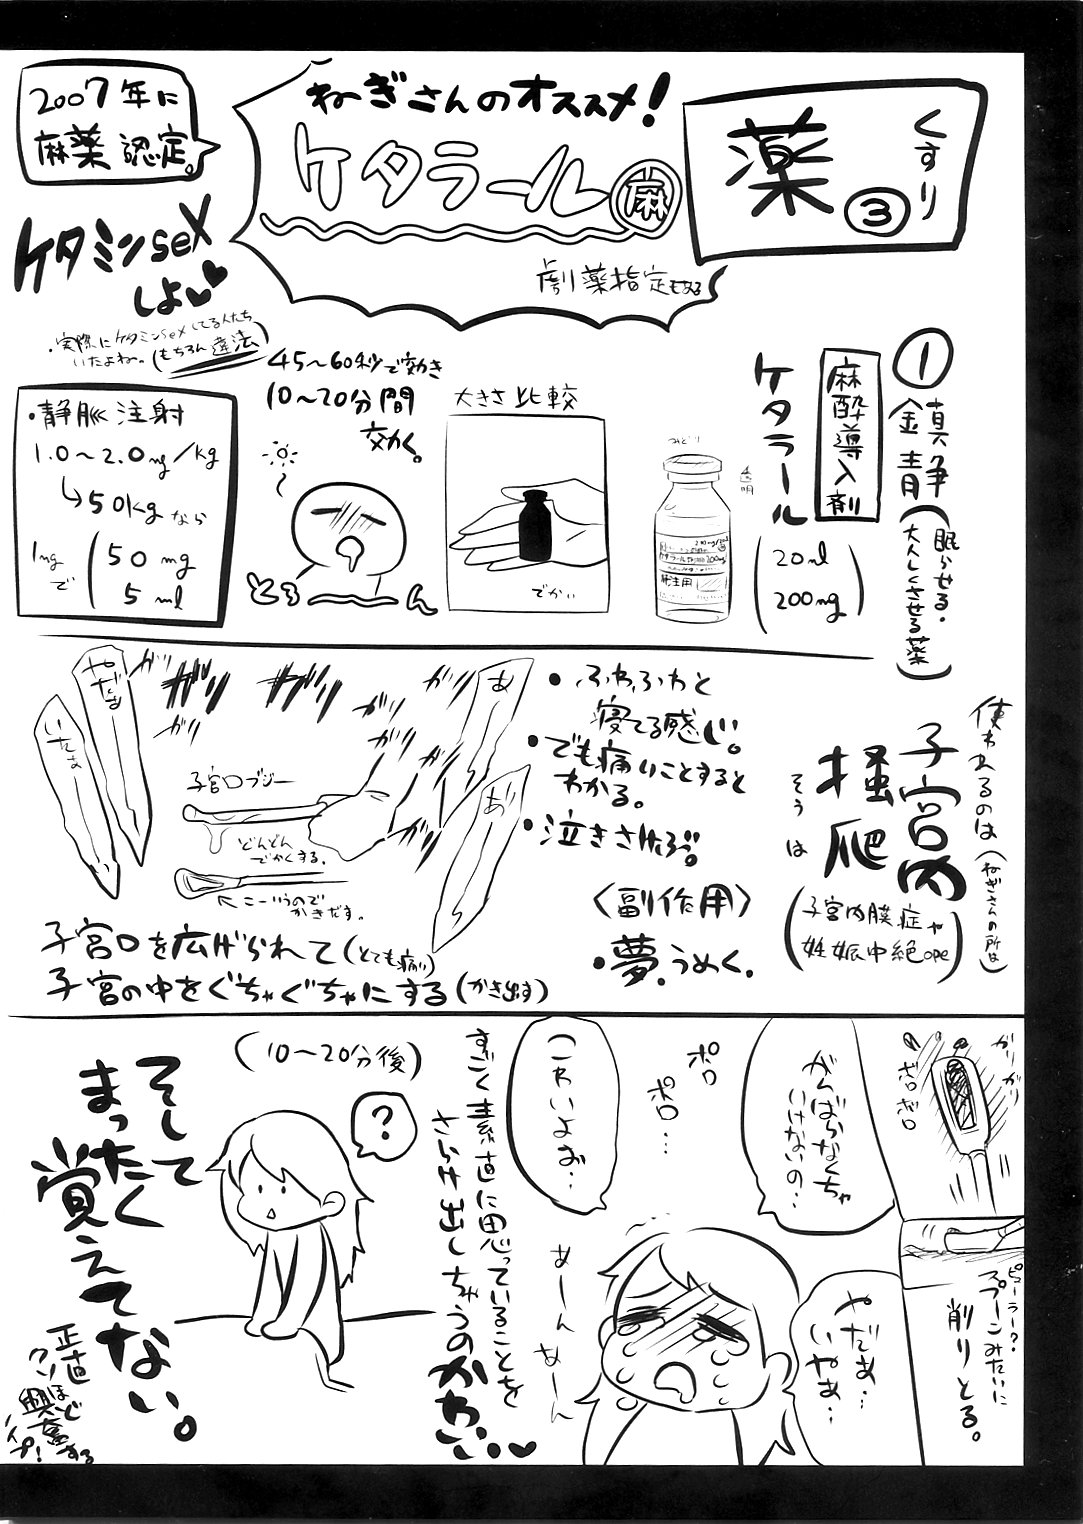 薬
くすり
③
ねぎさんのオススメ!
ケタラール
麻
劇薬指定もある
2007年に
麻薬認定。
ケタミンsex
しよ
・実際にケタミンsexしてる人たち
いたよね。(もちろん違法)
①
鎮静
(眠らせる・
大人しくさせる薬)
麻酔導入剤
ケタラール
(20ml
200mg)
みどり
透明
200mg
大きさ比較
でかい
45~60秒で効き
10~20分間
効く。
とろ
ん
・静脈注射
1.0~2.0mg/kg
→50kgなら
1mg
で
(50mg
5ml
使われるのは
(ねぎさんの所は)
子宮内
掻爬
そうは
(子宮内膜症や
妊娠中絶ope)
・ふわふわと
寝てる感じ。
・でも痛いことすると
わかる。
・泣きさけぶ。
<副作用>
・夢、うめく。
あ゛
あ゛
ガリ
ガリ
ガリ
ガリ
ガリ
ガリ
ガリ
やだぁ
いたぁ
子宮口ブジー
どんどん
でかくする。
こーいうので
かきだす。
子宮口を広げられて(とても痛い)
子宮の中をぐちゃぐちゃにする(かき出す)
ガリガリ
ボロボロ
ピューラー?
プーンみたいに
削りとる。
がんばらなくちゃ
いけないの‥
やだぁ‥
いやぁ‥
ポロ
ポロ…
こわいよお‥
あーん
あーん
すごく素直に思っていることを
さらけ出しちゃうのかわいい
(10~20分後)
?
そして
まったく
覚えてない。
正直
クソほど
興奮する